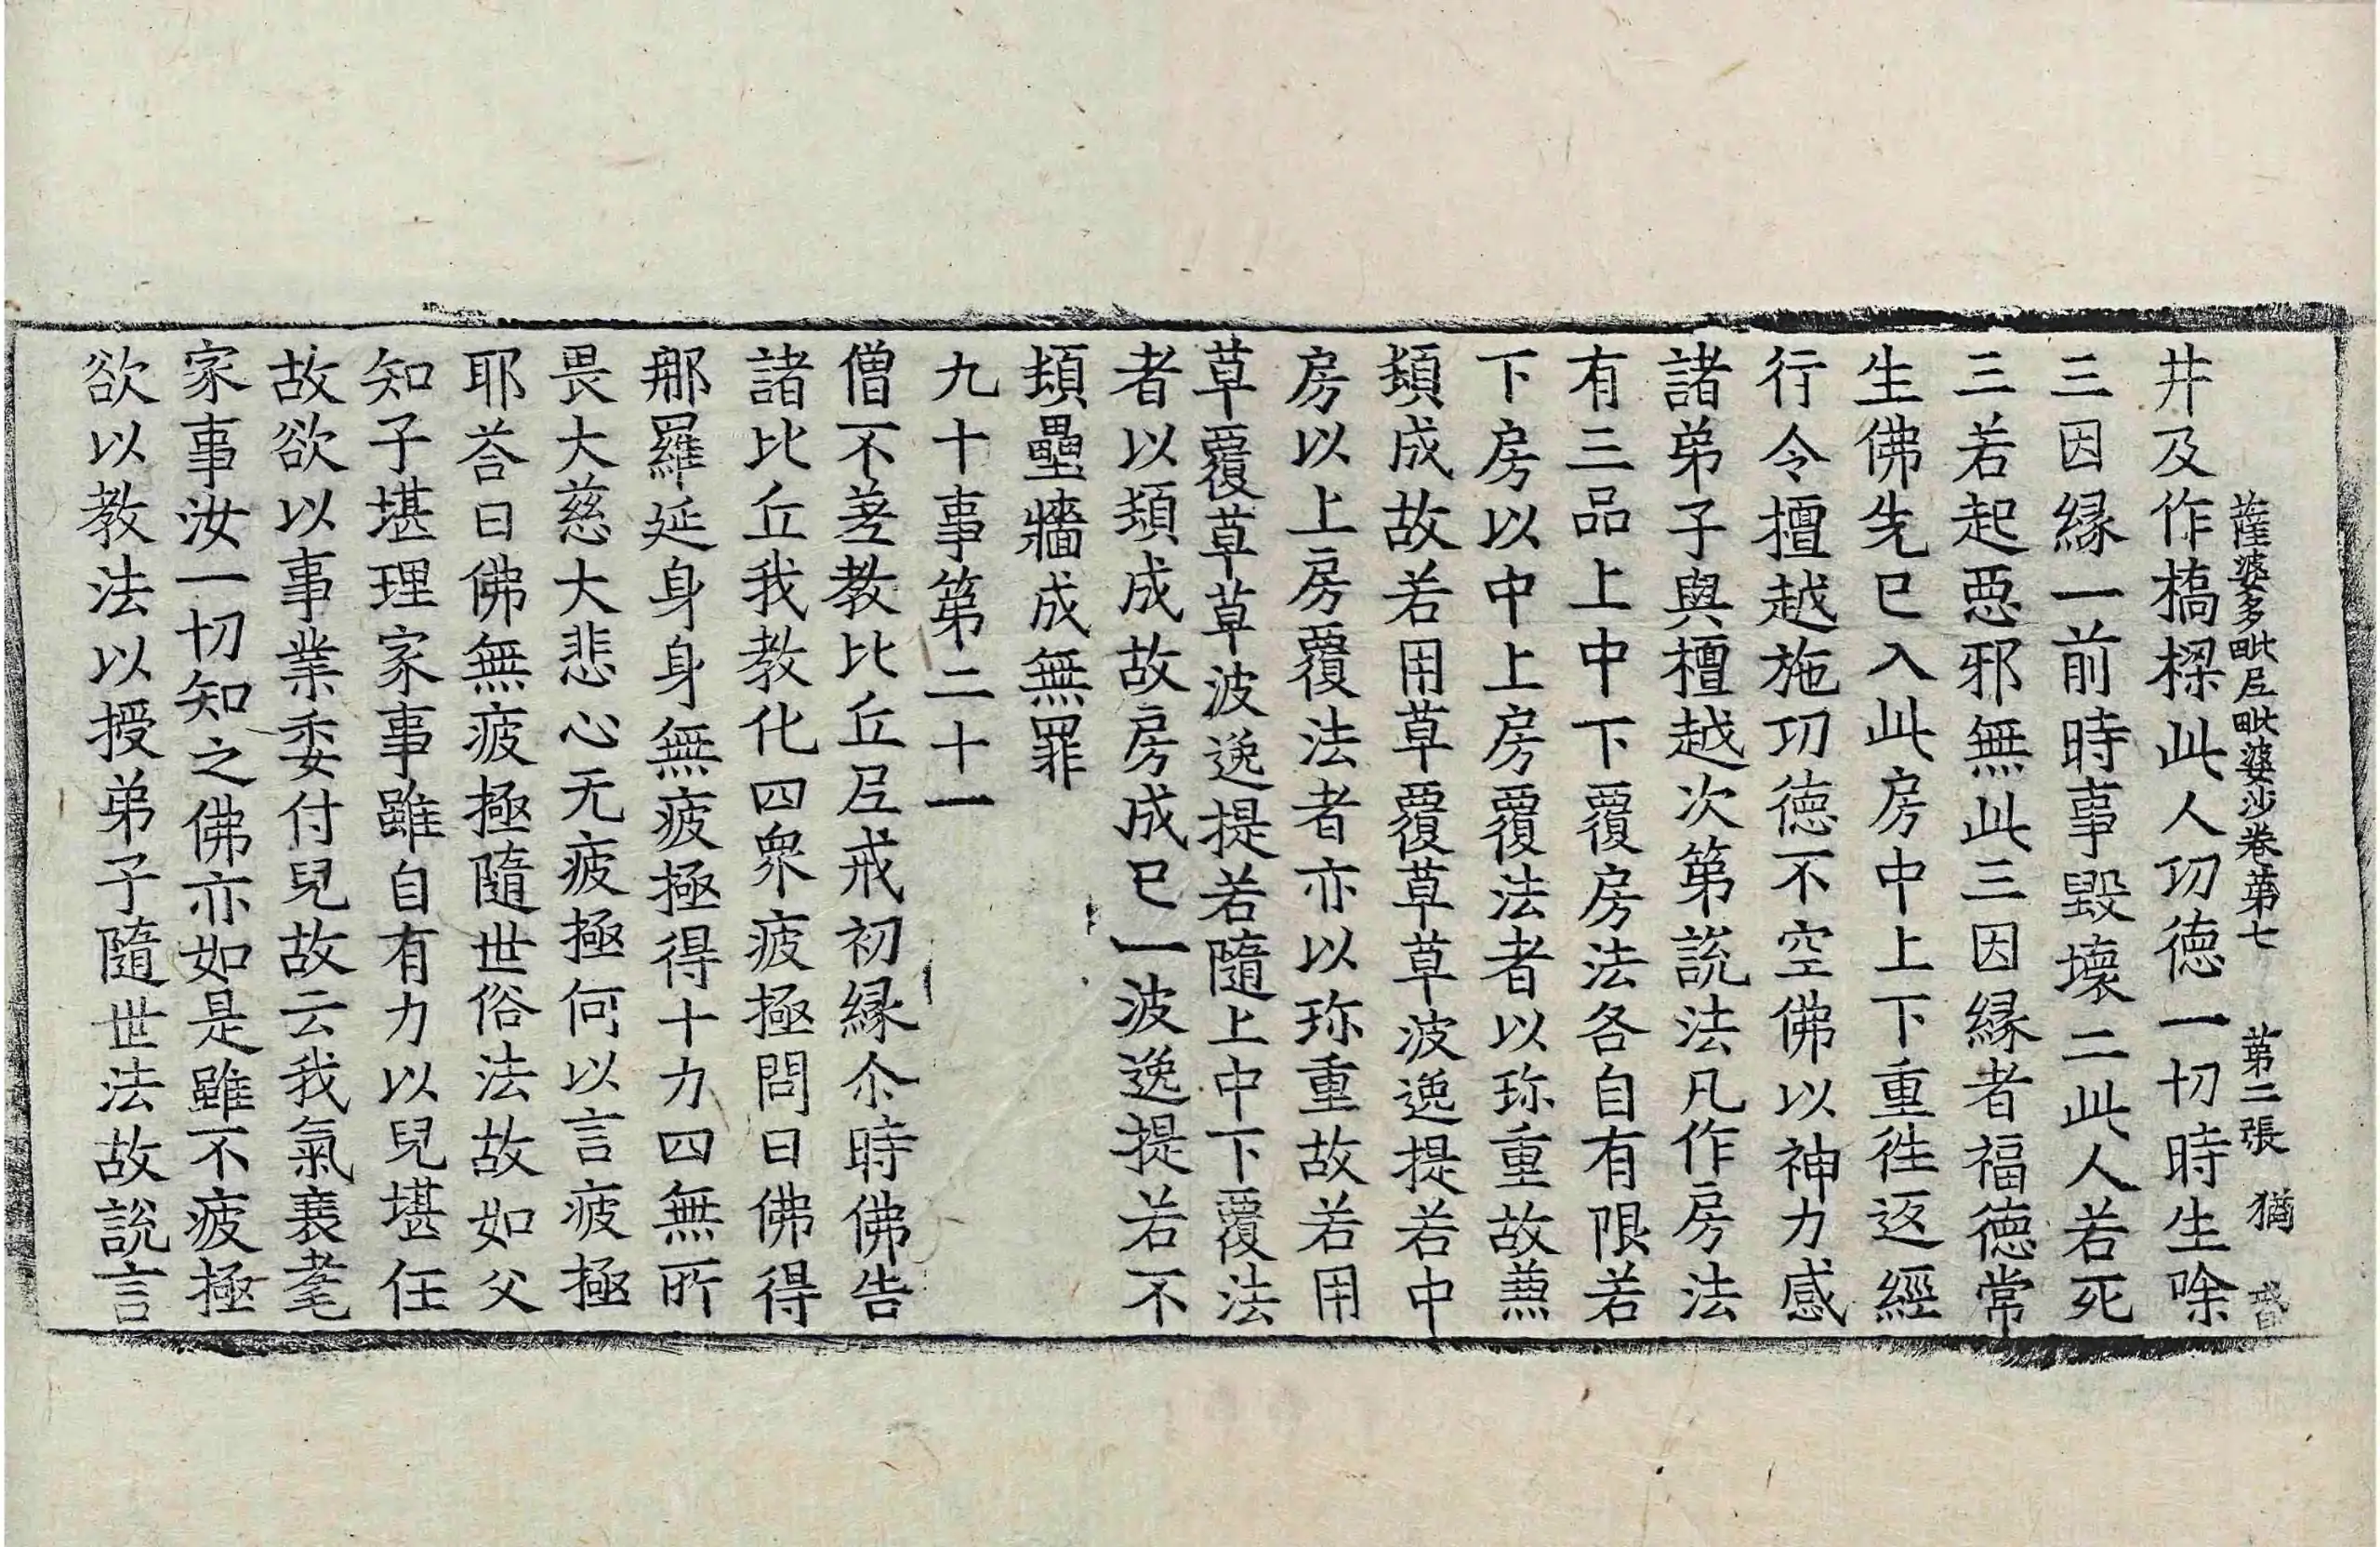 薩婆多毗尼毗婆沙卷苐七 苐二張 猶
井及作橋樑此人功德一切時生除
三因緣一前時事毀壞二此人若死
三若起惡邪無此三因緣者福德常
生佛先已入此房中上下重往返經
行令擅越施功德不空佛以神力感
諸弟子與檀越次第說法凡作房法
有三品上中下覆房法各自有限若
下房以中上房覆法者以珎重故䓕
頬成故若用草覆草草波逸提若中
房以上房覆法者亦以珎重故若用
草覆草草波逸提若隨上中下覆法
者以頬成故房成已一波逸提若不
頬壘牆成無罪
九十事第二十一
僧不差教比丘尼戒初緣尒時佛告
諸比丘我教化四衆疲極問曰佛得
那羅延身身無疲極得十力四無所
畏大慈大悲心无疲極何以言疲極
耶荅曰佛無疲極隨世俗法故如父
知子堪理家事雖自有力以兒堪任
故欲以事業委付兒故云我氣衰耄
家事汝一切知之佛亦如是雖不疲極
欲以教法以授弟子隨世法故說言